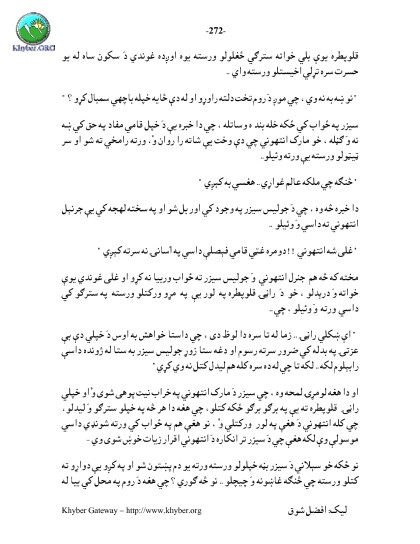 -272-
Khyber.ORG
قلوپطره يوې بلې خواته سترګې څغلولو ورسته يوه اوږده غوندي دَ سکون ساه له يو
حسرت سره تړلي اخيستلو ورسته واي ..
" نو ښه به نه وي ، چې موږ دَ روم تخت دلته راوړو او له دې ځايه خپله باچهي سمبال کړو ؟ "
سيزر په ځواب کې ځکه خله بنده وساتله ، چې دا خبره يې دَ خپل قامي مفاد په حق کې ښه
نه وګڼله ، خو مارک انتهوني چې دې وخت يې شاته را روان وُ ، ورته رامخې ته شو او سر
ټيټولو ورسته يې ورته ووئيلو..
" څنګه چې ملکه عالم غواړي .. هغسې به کيږي "
دا خبره څه وه ، چې دَ جوليس سيزر په وجود کې اور بل شو او په سخته لهجه کې يې جرنېل
انتهوني ته داسې ووئيلو ..
" غلی شه انتهوني !! دومره غټې قامي فيصلې داسې په اسانۍ نه سرته کيږي "
مخته که څه هم جنرل انتهوني وَ جوليس سيزر ته ځواب وربيا نه کړو او غلی غوندې يوې
خواته ودرېدلو ، خو دَ راڼۍ قلوپطره په لور يې په مړو ورکتلو ورسته په سترګو کې
داسې ورته ووئيلو ، چې..
" اې ښکلې راڼۍ .. زما له تا سره دا لوظ دی ، چې داستا خواهش به اوس دَ خپلې دې بې
عزتۍ په بدله کې ضرور سرته رسوم او دغه ستا زوړ جوليس سيزر به ستا له ژونده داسې
رابېلوم لکه .. لکه تا چې له ده سره کله هم ليدل کتل نه وي کړي "
او دا هغه لومړۍ لمحه وه ، چې سيزر دَ مارک انتهوني په خراب نيت پوهی شوی وُ او خپلې
راڼۍ قلوپطره ته يې په برګو برګو ځکه کتلو ، چې هغه دا هر څه په خپلو سترګو وَ ليدلو ،
چې کله انتهوني دَ هغې په لور ورکتلي وُ ، نو هغې هم په ځواب کې ورته شونډې داسې
موسولې وې لکه هغې چې دَ سيزر تر انکاره دَ انتهوني اقرار زيات خوښ شوی وي ..
نو ځکه خو سېلاني دَ سيزر بڼه خپلولو ورسته ورته يو دم پښتون شو او په کړو يې دواړو ته
کتلو ورسته چې څنګه غاښونه وَ چيچلو .. نو څه ګوري ؟ چې هغه دَ روم په محل کې بيا له
Khyber Gateway – http://www.khyber.org
ليک: افضل شوق